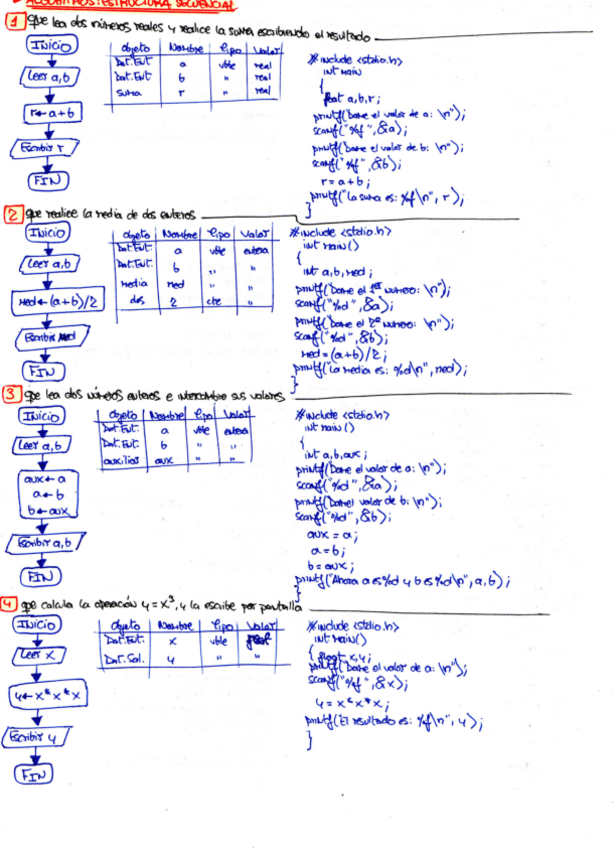 ALGORITMOS: ESTRUCTURA SECUENCIAL
1 que lea dos números reales y realice la suma escribiendo el resultado
INICIO
Leer a,b
r←a+b
Escribir r
FIN
Objeto Nombre Tipo Valor
Dat.Ent a vble real
Dat.Ent b " real
suma r " real
#include <stdio.h>
int main
{
float a,b,r;
printf("Dame el valor de a: \n");
scanf("%f",&a);
printf("Dame el valor de b: \n");
scanf("%f",&b);
r=a+b;
printf("La suma es: %f\n", r);
}
2 que realice la media de dos enteros
INICIO
Leer a,b
Med←(a+b)/2
Escribir Med
FIN
Objeto Nombre Tipo Valor
Dat.Ent. a vble entera
Dat.Ent. b " "
Media med " "
dos 2 cte "
#include <stdio.h>
int main()
{
int a,b,med;
printf("Dame el 1er numero: \n");
scanf("%d",&a);
printf("Dame el 2º numero: \n");
scanf("%d",&b);
med=(a+b)/2;
printf("La media es: %d\n", med);
}
3 que lea dos números enteros e intercambie sus valores
INICIO
Leer a,b
aux←a
a←b
b←aux
Escribir a,b
FIN
Objeto Nombre Tipo Valor
Dat.Ent. a vble entera
Dat.Ent. b " "
auxiliar aux " "
#include <stdio.h>
int main()
{
int a,b,aux;
printf("Dame el valor de a: \n");
scanf("%d",&a);
printf("Dame valor de b: \n");
scanf("%d",&b);
aux=a;
a=b;
b=aux;
printf("Ahora a es %d y b es %d\n",a,b);
}
4 que calcula la operación y=x³, y la escribe por pantalla
INICIO
Leer x
y←x*x*x
Escribir y
FIN
Objeto Nombre Tipo Valor
Dat.Ent. x vble
Dat.Sal. y " "
#include <stdio.h>
int main()
{ float x,y;
printf("Dame el valor de a: \n");
scanf("%f",&x);
y=x*x*x;
printf("El resultado es: %f\n",y);
}